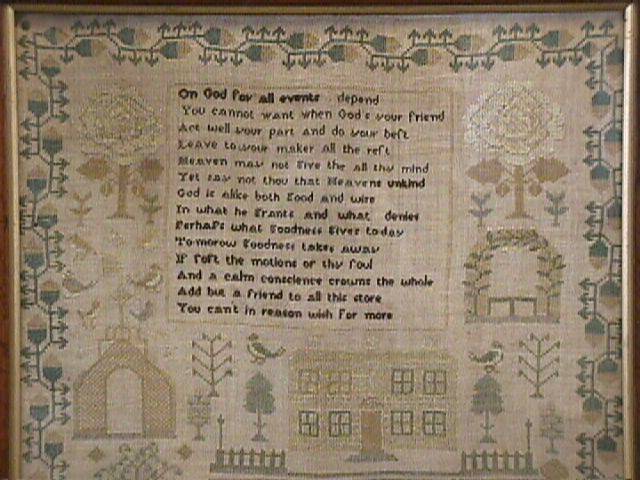 On God for all events depend
You cannot want when God's your friend
Act well your part and do your beſt
Leave to your maker all the reſt
Heaven may not Give the all thy mind
Yet say not thou that Heavens unkind
God is alike both Good and wise
In what he Grants and what denies
Perhaps what Goodness Gives today
Tomorow Goodness takes away
If ſoft the motions of thy ſoul
And a calm conscience crowns the whole
Add but a friend to all this store
You can't in reason wish for more